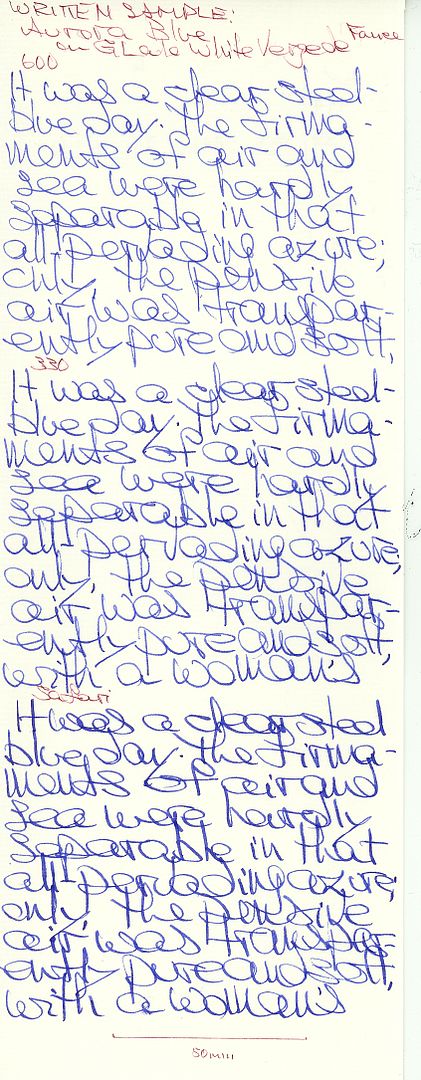 WRITTEN SAMPLE:
Aurora Blue
on G. Lalo White Vergede France
600
It was a clear steel-
blue day. The firma-
ments of air and
sea were hardly
separable in that
all-pervading azure;
only, the pensive
air was transpar-
ently pure and soft,
330
It was a clear steel-
blue day. The firma-
ments of air and
sea were hardly
separable in that
all-pervading azure;
only, the pensive
air was transpar-
ently pure and soft,
with a woman's
Safari
It was a clear steel
blue day. The firma-
ments of air and
sea were hardly
separable in that
all-pervading azure;
only, the pensive
air was transpar-
ently pure and soft,
with a woman's
50mm